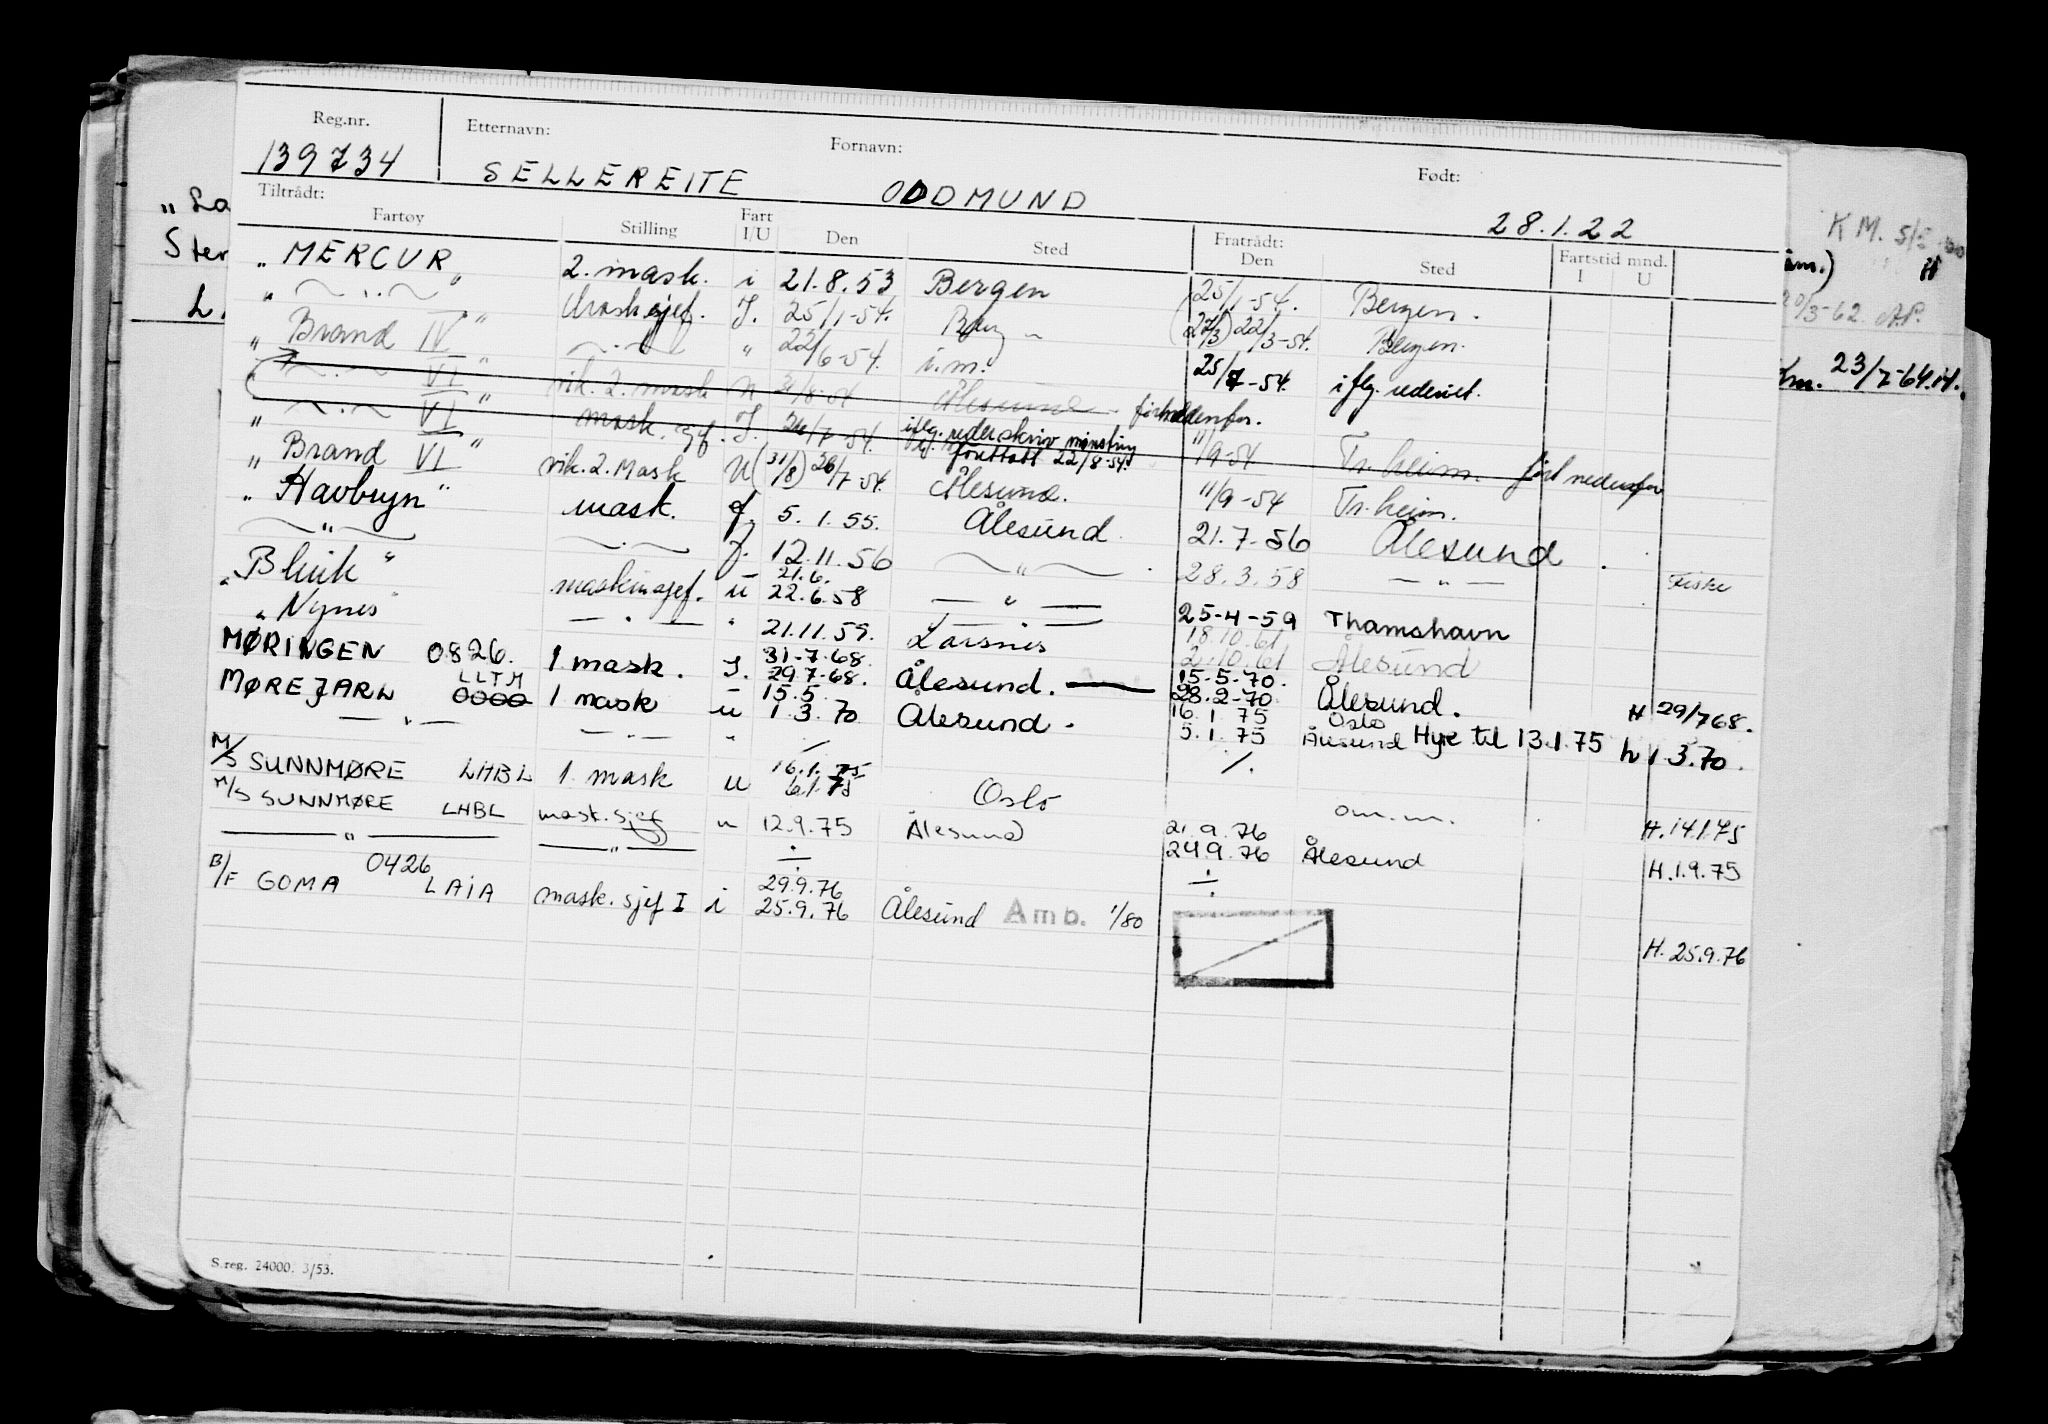 Reg.nr. Etternavn: Fornavn: Født:
139734 SELLEREITE ODDMUND 28.1.22
Tiltrådt: Fratrådt:
Fartøy Stilling Fart I/U Den Sted Den Sted Fartstid mnd. I U
„ MERCUR „ 2. mask. i 21.8.53 Bergen 25/1-54. Bergen.
„ — „ — „ Masksjef. I. 25/1-54. Berg — (22/3) 22/3-54. Bergen.
„ Brand IV „ — „ — „ 22/6-54. i.m. 25/7-54. iflg. rederiet.
„ — „ — VI „ vik. 2. mask U 31/8-54 Ålesund. først nedenfor.
„ — „ — VI „ mask. sjef. I. 26/7-54. iflg. rederskriv mønstring foretatt 22/8-54. 11/9-54 Tr.heim. ført nedenfor
„ Brand VI „ vik. 2. Mask U (31/8) 26/7-54. Ålesund. 11/9-54 Tr.heim.
„ Havbryn „ mask. f. 5.1.55. Ålesund. 21.7-56 Ålesund.
— „ — — „ — f. 12.11.56 — „ — 28.3.58 — „ — Fiske
„ Blink „ maskinsjef. u 21.6. 22.6.58 — „ — 25-4-59 Thamshavn
„ Vynes „ — „ — „ 21.11.59. Larsnes 18.10.61 2.10.61 Ålesund
MØRINGEN 0826. 1 mask. I. 31-7-68. 29.7-68. Ålesund. 15-5-70. 28.2-70. Ålesund. H 29/768.
MØREJARL LLTM 1 mask u 15.5. 1.3.70 Ålesund. 16.1.75 5.1.75 Oslo Ålesund Hyre til 13.1.75 h 1.3.70.
— „ — — „ — „ ⁒ ⁒
M/S SUNNMØRE LHBL 1. mask u 16.1.75 6.1.75 Oslo om.m. H.14.1.75
M/S SUNNMØRE LHBL mask.sjef u 12.9.75 Ålesund 21.9.76 24.9.76 Ålesund H.1.9.75
— „ — — „ — ÷ ÷
B/F GOMA 0426 LAIA mask.sjef I i 29.9.76 25.9.76 Ålesund Amb. 1/80 H.25.9.76
S.reg. 24000. 3/53.
K M.
20/3-62. A.P.
23/7-64.H.